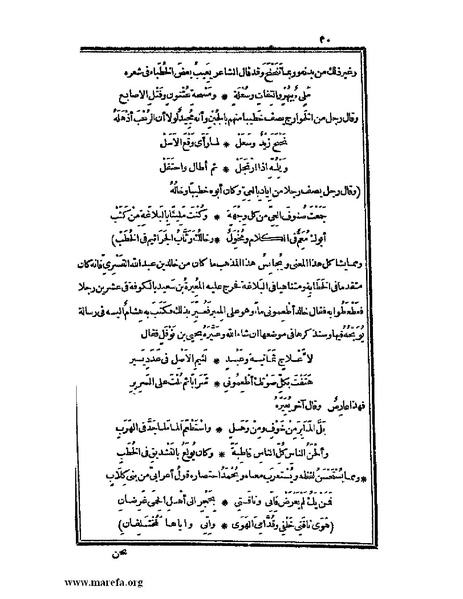 ٣٠
وغير ذلك من بدنه وربما تنحنح وقد قال الشاعر يعيب بعض الخطباء في شعره
ملىء ببهر والتفات وسعلة * ومسحة عثنون وفتل الاصابع
وقال رجل من الخوارج يصف خطيبا منهم بالجبن وأنه مجيد لولا أن الرعب أذهله
نحنح زيد وسعل * لما رأى وقع الأسل
ويلمه اذا ارتجل * ثم أطال واحتفل
(وقال رجل يصف رجلا من اياد بالعي وكان أبوه خطيبا وخاله
جمعت صنوف العي من كل وجهة * وكنت مليئا بالبلاغة من كثب
أبوك معم في الكلام ومخول * وخالك وثاب الجراثيم في الخطب)
ومما يشاكل هذا المعنى ويجانس هذا المذهب ما كان من خالد بن عبد الله القسري فانه كان
متقدما في الخطابة ومتناهيا في البلاغة خرج عليه المغيرة بن سعيد بالكوفة في عشرين رجلا
فعطعطوا به فقال خالد أطعموني ماء وهو على المنبر فعير بذلك فكتب به هشام اليه في رسالة
يوبخه فيها وسنذكرها في موضعها ان شاء الله وعيره يحيى بن نوفل فقال
لأعلاج ثمانية وعبد * لئيم الأصل في عدد يسير
هتفت بكل صوتك أطعموني * شرابا ثم بلت على السرير
فهذا عارض وقال آخر يعيره
بل المنابر من خوف ومن وهل * واستطعم الماء لما جد في الهرب
وألحن الناس كل الناس قاطبة * وكان يولع بالتشديق في الخطب
* ومما يستحسن لفظه ويستغرب معناه ويحمد اختصاره قول أعرابي من بني كلاب
فمن يك لم يغرض فاني وناقتي * بحجر الى أهل الحمى غرضان
(هوى ناقتي خلفي وقدامي الهوى * واني واياها لمختلفان)
تحن
www.marefa.org